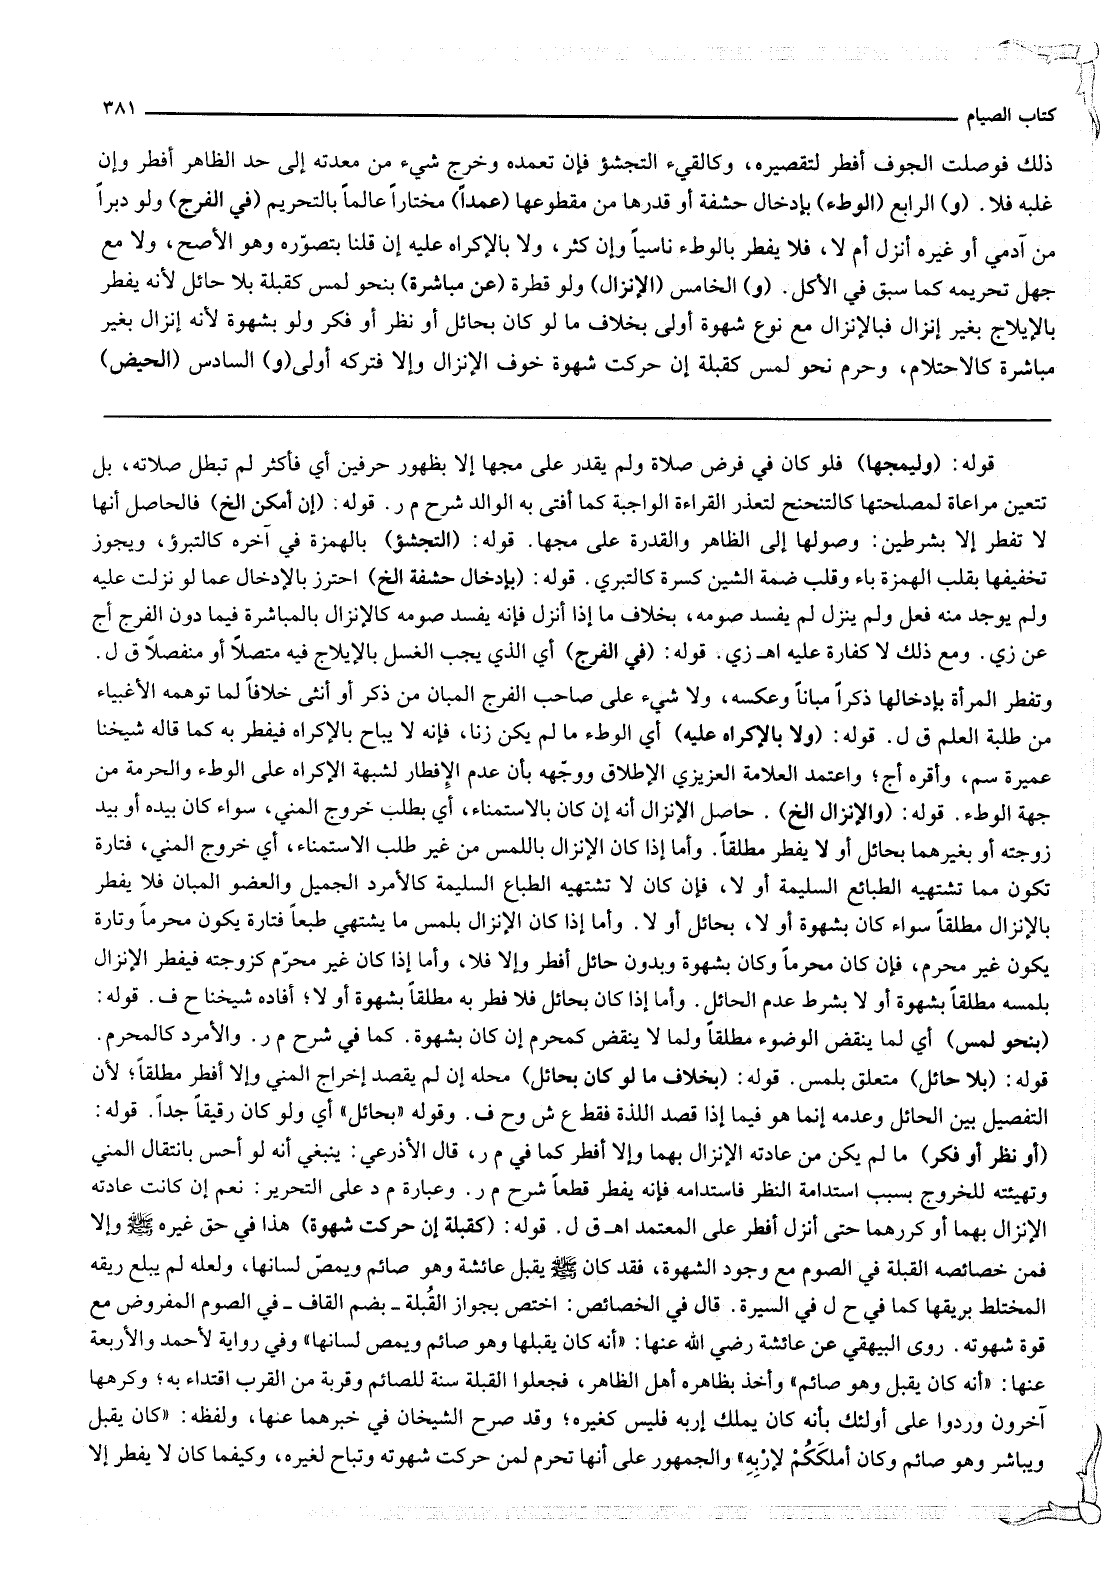 كتاب الصيام ٣٨١
ذلك فوصلت الجوف أفطر لتقصيره، وكالقيء التجشؤ فإن تعمده وخرج شيء من معدته إلى حد الظاهر أفطر وإن
غلبه فلا. (و) الرابع (الوطء) بإدخال حشفة أو قدرها من مقطوعها (عمداً) مختاراً عالماً بالتحريم (في الفرج) ولو دبراً
من آدمي أو غيره أنزل أم لا، فلا يفطر بالوطء ناسياً وإن كثر، ولا بالإكراه عليه إن قلنا بتصوّره وهو الأصح، ولا مع
جهل تحريمه كما سبق في الأكل. (و) الخامس (الإنزال) ولو قطرة (عن مباشرة) بنحو لمس كقبلة بلا حائل لأنه يفطر
بالإيلاج بغير إنزال فبالإنزال مع نوع شهوة أولى بخلاف ما لو كان بحائل أو نظر أو فكر ولو بشهوة لأنه إنزال بغير
مباشرة كالاحتلام، وحرم نحو لمس كقبلة إن حركت شهوة خوف الإنزال وإلا فتركه أولى(و) السادس (الحيض)
قوله: (وليمجها) فلو كان في فرض صلاة ولم يقدر على مجها إلا بظهور حرفين أي فأكثر لم تبطل صلاته، بل
تتعين مراعاة لمصلحتها كالتنحنح لتعذر القراءة الواجبة كما أفتى به الوالد شرح م ر. قوله: (إن أمكن الخ) فالحاصل أنها
لا تفطر إلا بشرطين: وصولها إلى الظاهر والقدرة على مجها. قوله: (التجشؤ) بالهمزة في آخره كالتبرؤ، ويجوز
تخفيفها بقلب الهمزة باء وقلب ضمة الشين كسرة كالتبري. قوله: (بإدخال حشفة الخ) احترز بالإدخال عما لو نزلت عليه
ولم يوجد منه فعل ولم ينزل لم يفسد صومه، بخلاف ما إذا أنزل فإنه يفسد صومه كالإنزال بالمباشرة فيما دون الفرج أج
عن زي. ومع ذلك لا كفارة عليه اهـ زي. قوله: (في الفرج) أي الذي يجب الغسل بالإيلاج فيه متصلاً أو منفصلاً ق ل.
وتفطر المرأة بإدخالها ذكراً مباناً وعكسه، ولا شيء على صاحب الفرج المبان من ذكر أو أنثى خلافاً لما توهمه الأغبياء
من طلبة العلم ق ل. قوله: (ولا بالإكراه عليه) أي الوطء ما لم يكن زنا، فإنه لا يباح بالإكراه فيفطر به كما قاله شيخنا
عميرة سم، وأقره أج؛ واعتمد العلامة العزيزي الإطلاق ووجّهه بأن عدم الإفطار لشبهة الإكراه على الوطء والحرمة من
جهة الوطء. قوله: (والإنزال الخ). حاصل الإنزال أنه إن كان بالاستمناء، أي بطلب خروج المني، سواء كان بيده أو بيد
زوجته أو بغيرهما بحائل أو لا يفطر مطلقاً. وأما إذا كان الإنزال باللمس من غير طلب الاستمناء، أي خروج المني، فتارة
تكون مما تشتهيه الطبائع السليمة أو لا، فإن كان لا تشتهيه الطباع السليمة كالأمرد الجميل والعضو المبان فلا يفطر
بالإنزال مطلقاً سواء كان بشهوة أو لا، بحائل أو لا. وأما إذا كان الإنزال بلمس ما يشتهي طبعاً فتارة يكون محرماً وتارة
يكون غير محرم، فإن كان محرماً وكان بشهوة وبدون حائل أفطر وإلا فلا، وأما إذا كان غير محرّم كزوجته فيفطر الإنزال
بلمسه مطلقاً بشهوة أو لا بشرط عدم الحائل. وأما إذا كان بحائل فلا فطر به مطلقاً بشهوة أو لا؛ أفاده شيخنا ح ف. قوله:
(بنحو لمس) أي لما ينقض الوضوء مطلقاً ولما لا ينقض كمحرم إن كان بشهوة. كما في شرح م ر. والأمرد كالمحرم.
قوله: (بلا حائل) متعلق بلمس. قوله: (بخلاف ما لو كان بحائل) محله إن لم يقصد إخراج المني وإلا أفطر مطلقاً؛ لأن
التفصيل بين الحائل وعدمه إنما هو فيما إذا قصد اللذة فقط ع ش وح ف. وقوله «بحائل» أي ولو كان رقيقاً جداً. قوله:
(أو نظر أو فكر) ما لم يكن من عادته الإنزال بهما وإلا أفطر كما في م ر، قال الأذرعي: ينبغي أنه لو أحس بانتقال المني
وتهيئته للخروج بسبب استدامة النظر فاستدامه فإنه يفطر قطعاً شرح م ر. وعبارة م د على التحرير: نعم إن كانت عادته
الإنزال بهما أو كررهما حتى أنزل أفطر على المعتمد اهـ ق ل. قوله: (كقبلة إن حركت شهوة) هذا في حق غيره ﷺ وإلا
فمن خصائصه القبلة في الصوم مع وجود الشهوة، فقد كان ﷺ يقبل عائشة وهو صائم ويمصّ لسانها، ولعله لم يبلع ريقه
المختلط بريقها كما في ح ل في السيرة. قال في الخصائص: اختص بجواز القُبلة ـ بضم القاف ـ في الصوم المفروض مع
قوة شهوته. روى البيهقي عن عائشة رضي الله عنها: «أنه كان يقبلها وهو صائم ويمص لسانها» وفي رواية لأحمد والأربعة
عنها: «أنه كان يقبل وهو صائم» وأخذ بظاهره أهل الظاهر، فجعلوا القبلة سنة للصائم وقربة من القرب اقتداء به؛ وكرهها
آخرون وردوا على أولئك بأنه كان يملك إربه فليس كغيره؛ وقد صرح الشيخان في خبرهما عنها، ولفظه: «كان يقبل
ويباشر وهو صائم وكان أملكَكُمْ لإرْبِهِ» والجمهور على أنها تحرم لمن حركت شهوته وتباح لغيره، وكيفما كان لا يفطر إلا